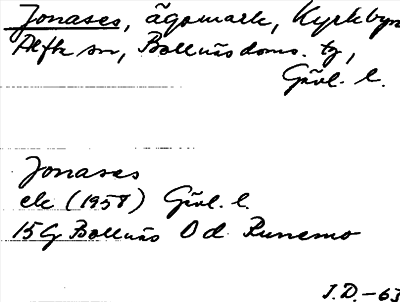 Jonases, ägomark, Kyrkbyn
Alfta sn, Bollnäs doms. tg,
Gävl. l.
Jonases
ek (1958) Gävl. l.
15G Bollnäs 0d Runemo
I.D. -63